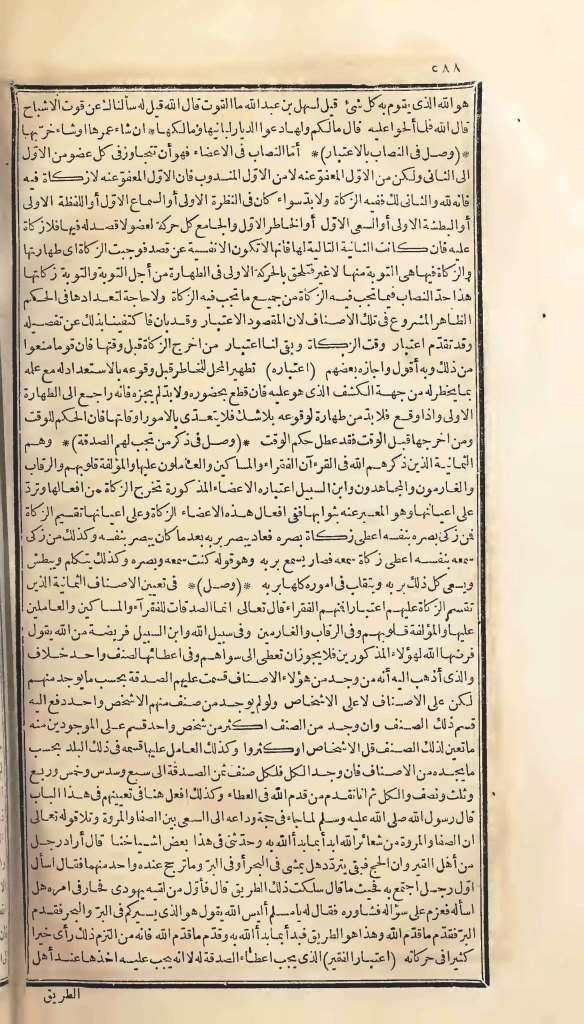 ٢٨٨
هو الله الذى يقوم به كل شئ قيل لسهل بن عبد الله ما القوت قال الله قيل له سألناك عن قوت الاشباح
قال الله فلما ألحوا عليه قال مالكم ولها دعوا الديار لبانيها ومالكها * ان شاء عمرها وشاء خربها
*(وصل فى النصاب بالاعتبار)* أما النصاب فى الاعضاء فهو أن تتجاوز فى كل عضو من الاول
الى الثانى ولكن من الاول المعفو عنه لا من الاول المندوب فان الاول المعفو عنه لا زكاة فيه
فانه لله والثانى لك ففيه الزكاة ولا بد سواء كان فى النظرة الاولى أو السماع الاول أو اللفظة الاولى
أو البطشة الاولى أو السعى الاول أو الخاطر الاول والجامع كل حركة لعضو لا قصد له فيها فلا زكاة
عليه فان كانت الثانية التالية لها فانها لا تكون الا نفسية عن قصد فوجبت الزكاة اى طهارتها
والزكاة فيها هى التوبة منها لا غير فتلحق بالحركة الاولى فى الطهارة من أجل التوبة والتوبة زكاتها
هذا حد النصاب فيما تجب فيه الزكاة من جميع ما تجب فيه الزكاة ولا حاجة لتعدادها فى الحكم
الظاهر المشروع فى تلك الاصناف لان المقصود الاعتبار وقد بان فاكتفينا بذلك عن تفصيله
وقد تقدم اعتبار وقت الزكاة وبقى لنا اعتبار من اخرج الزكاة قبل وقتها فان قوما منعوا
من ذلك وبه أقول واجازه بعضهم (اعتباره) تطهير المحل للخاطر قبل وقوعه بالاستعداد له مع علمه
بما يخطر له من جهة الكشف الذى هو عليه فان قطع بحضوره ولا بد لم يجزه فانه راجع الى الطهارة
الاولى واذا وقع فلا بد من طهارة لوقوعه بلا شك فلا يتعدى بالامور اوقاتها فان الحكم للوقت
ومن اخرجها قبل الوقت فقد عطل حكم الوقت *(وصل فى ذكر من تجب لهم الصدقة)* وهم
الثمانية الذين ذكرهم الله فى القرءآن الفقراء والمساكين والعاملون عليها والمؤلفة قلوبهم والرقاب
والغارمون والمجاهدون وابن السبيل اعتباره الاعضاء المذكورة تخرج الزكاة من افعالها وترد
على اعيانها وهو المعبر عنه بثوابها ففى افعال هذه الاعضاء الزكاة وعلى اعيانها تقسيم الزكاة
فمن زكى بصره بنفسه اعطى زكاة بصره فعاد يبصر بربه بعد ما كان يبصر بنفسه وكذلك من زكى
سمعه بنفسه اعطى زكاة سمعه فصار يسمع بربه وهو قوله كنت سمعه وبصره وكذلك يتكلم ويبطش
ويسعى كل ذلك بربه ويتقلب فى اموره كلها بربه *(وصل)* فى تعيين الاصناف الثمانية الذين
تقسم الزكاة عليهم اعتبارا فمنهم الفقراء قال تعالى انما الصدقات للفقراء والمساكين والعاملين
عليها والمؤلفة قلوبهم وفى الرقاب والغارمين وفى سبيل الله وابن السبيل فريضة من الله يقول
فرضها الله لهؤلاء المذكورين فلا يجوز ان تعطى الى سواهم وفى اعطائها لصنف واحد خلاف
والذى أذهب اليه أنه من وجد من هؤلاء الاصناف قسمت عليهم الصدقة بحسب ما يوجد منهم
لكن على الاصناف لا على الاشخاص ولو لم يوجد من صنف منهم الا شخص واحد دفع اليه
قسم ذلك الصنف وان وجد من الصنف اكثر من شخص واحد قسم على الموجودين منه
ما تعين لذلك الصنف قل الاشخاص او كثروا وكذلك العامل عليها قسمه فى ذلك البلد بحسب
ما يجده من الاصناف فان وجد الكل فلكل صنف ثمن الصدقة الى سبع وسدس وخمس وربع
وثلث ونصف والكل ثم انا نقدم من قدم الله فى العطاء وكذلك افعل هنا فى تعيينهم فى هذا الباب
قال رسول الله صلى الله عليه وسلم لما جاء فى حجة وداعه الى السعى بين الصفا والمروة وتلا قوله تعالى
ان الصفا والمروة من شعائر الله ابدأ بما بدأ الله به وحدثنى فى هذا بعض اشياخنا قال أراد رجل
من أهل القيروان الحج فبقى يتردد هل يمشى فى البحر أو فى البر وما ترجح عنده واحد منهما فقال اسأل
اول رجل اجتمع به فحيث ما قال سلكت ذلك الطريق قال فأول من لقيه يهودى فحار فى امره هل
اسأله فعزم على سؤاله فشاوره فقال له يا مسلم أليس الله يقول هو الذى يسيركم فى البر والبحر فقدم
البر فقدم ما قدم الله وهذا هو الطريق فبدأ بما بدأ الله به وقدم ما قدم الله فانه من التزم ذلك رأى خيرا
كثيرا فى حركاته (اعتبار الفقير) الذى يجب اعطاء الصدقة له لا انه يجب عليه اخذها عند أهل
الطريق